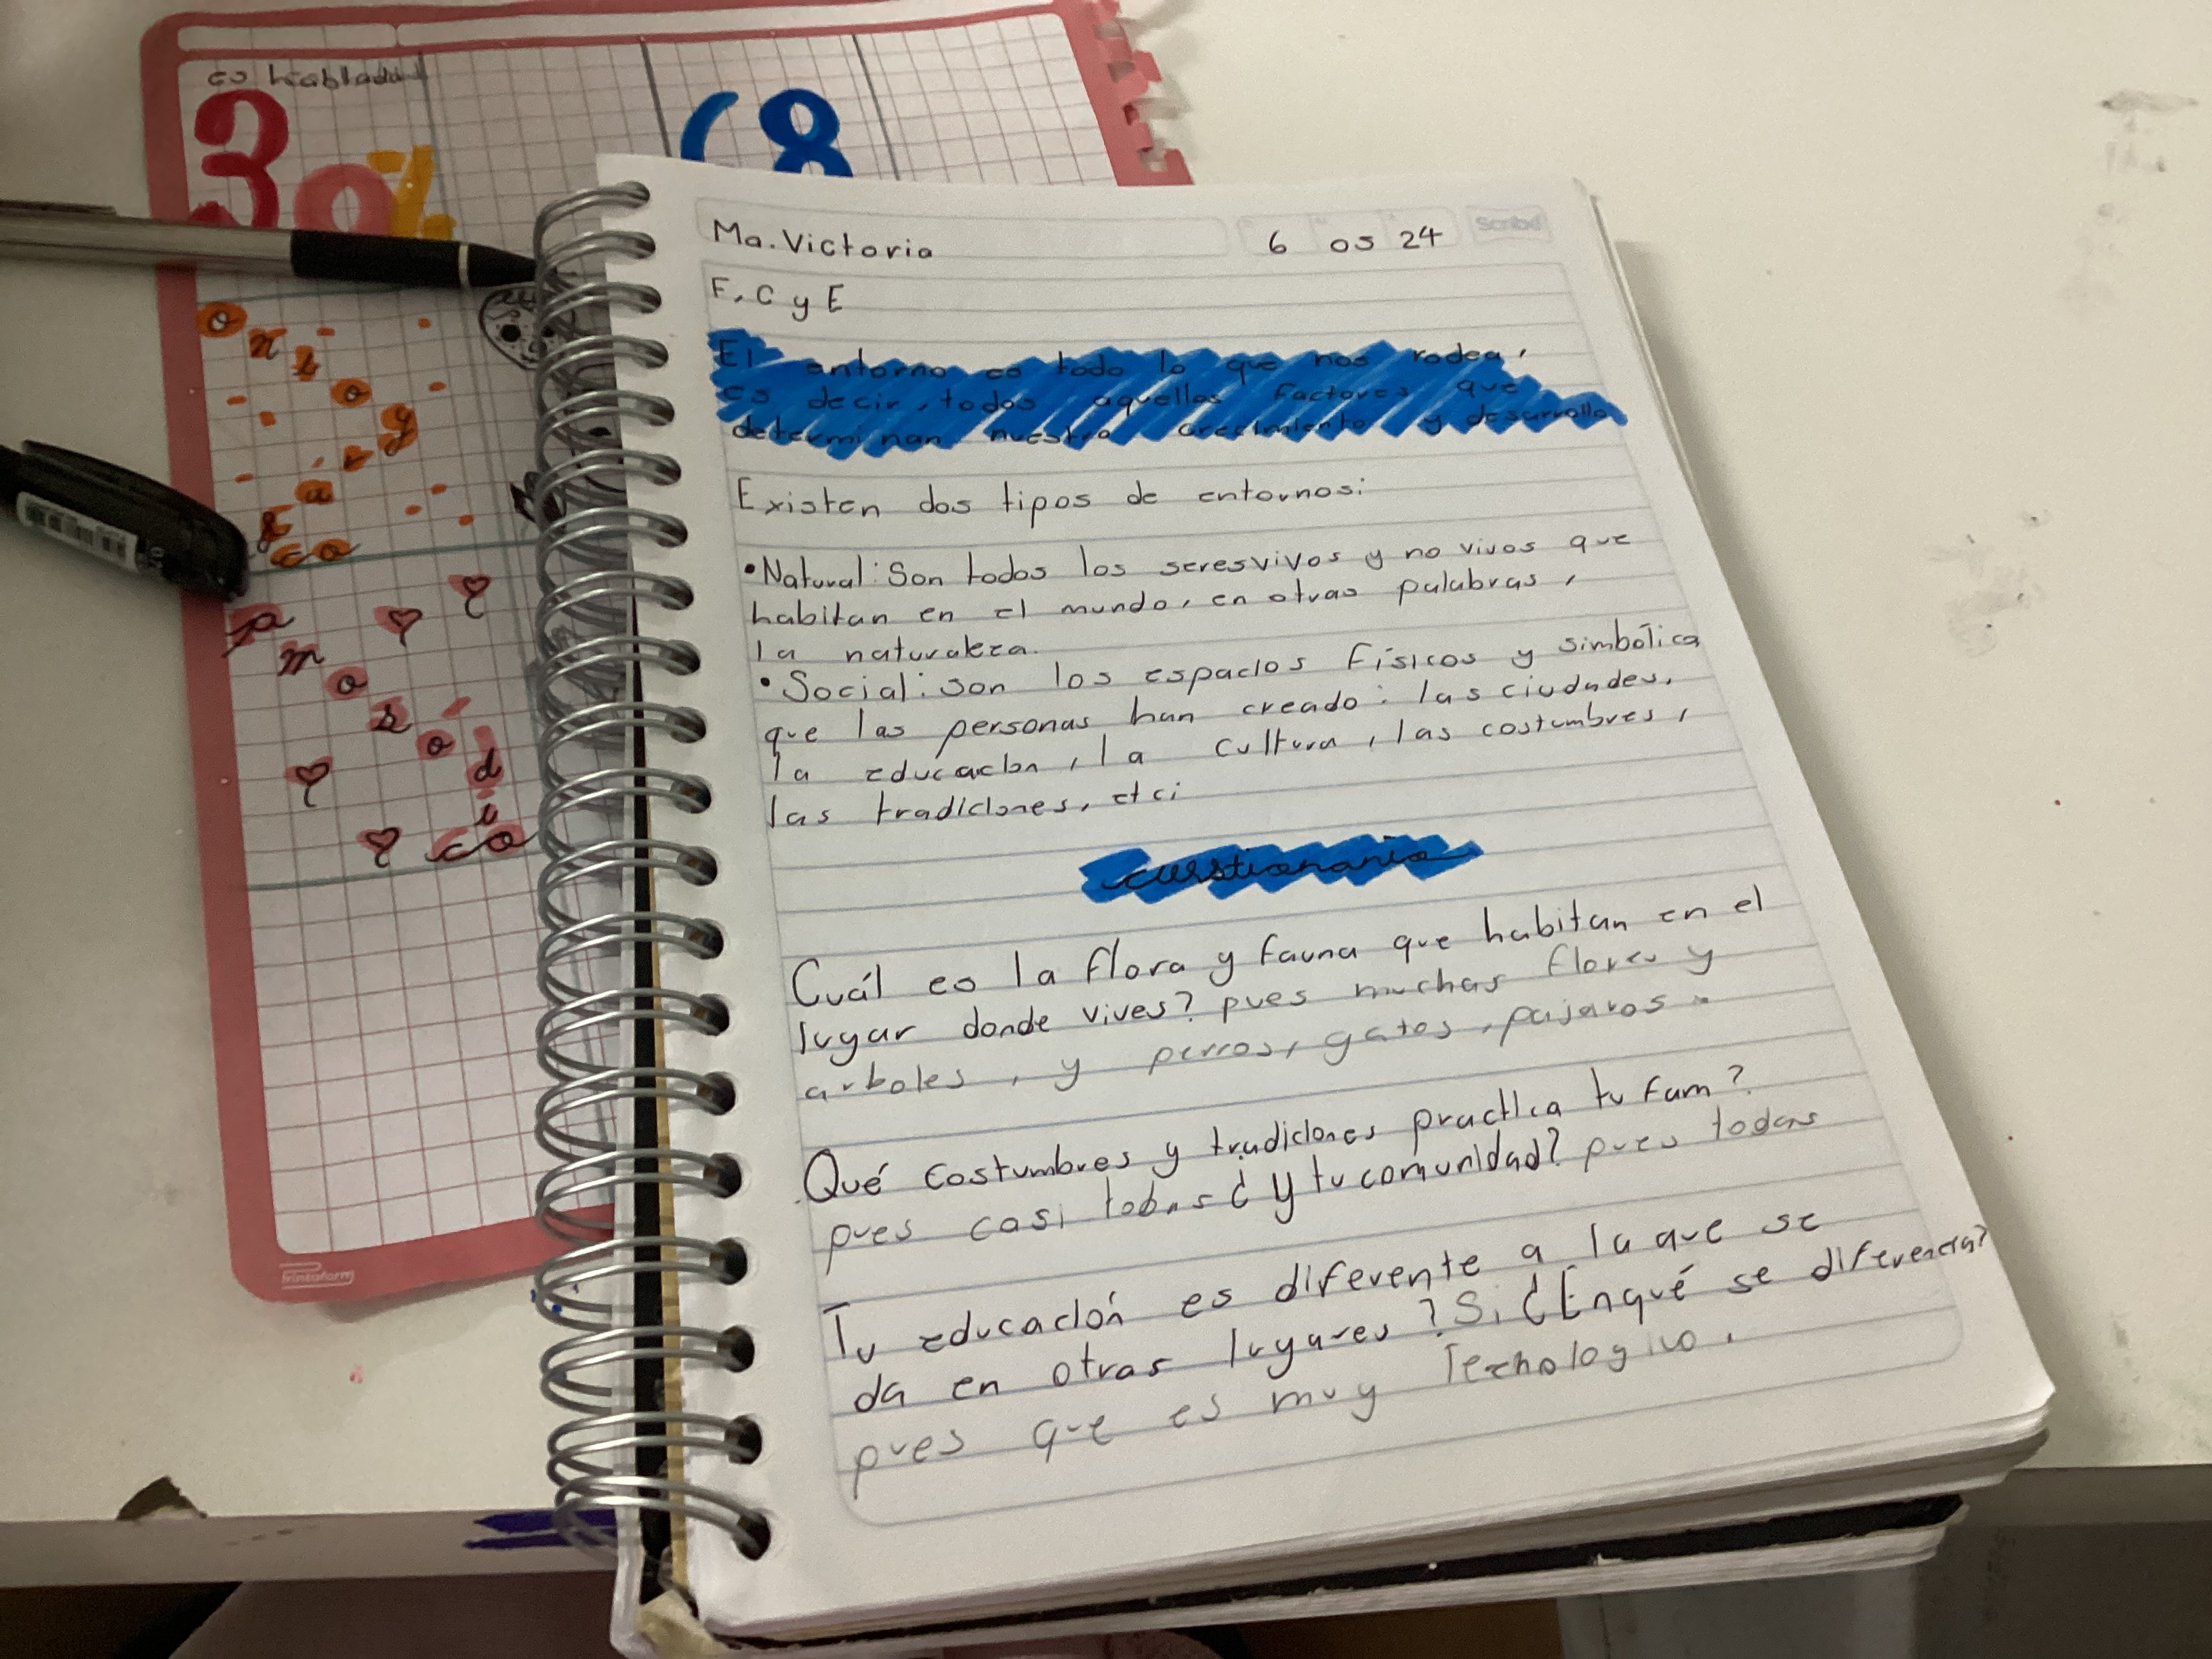 es hablada
30%
(8
onto y
fágico
pmosódico
Printaform
Ma. Victoria
6 05 24
Scribe
F, C y E
El antorno es todo lo que nos rodea,
es decir, todos aquellos factores que
determinan nuestro crecimiento y desarrollo
Existen dos tipos de entornos:
•Natural: Son todos los seresvivos y no vivos que
habitan en el mundo, en otras palabras,
la naturaleza.
•Social: son los espacios Físicos y simbólica
que las personas han creado: las ciudades,
la educacion, la cultura, las costumbres,
las tradiciones, etc;
cuestionario
Cuál es la flora y fauna que habitan en el
lugar donde vives? pues muchas flores y
arboles, y perros, gatos, pajaros.
Qué costumbres y tradiciones practica tu fam?
pues casi todas ¿Y tu comunidad? pues todas
Tu educación es diferente a la que se
da en otras lugares? Si ¿Enqué se diferencia?
pues que es muy Tecnologico.